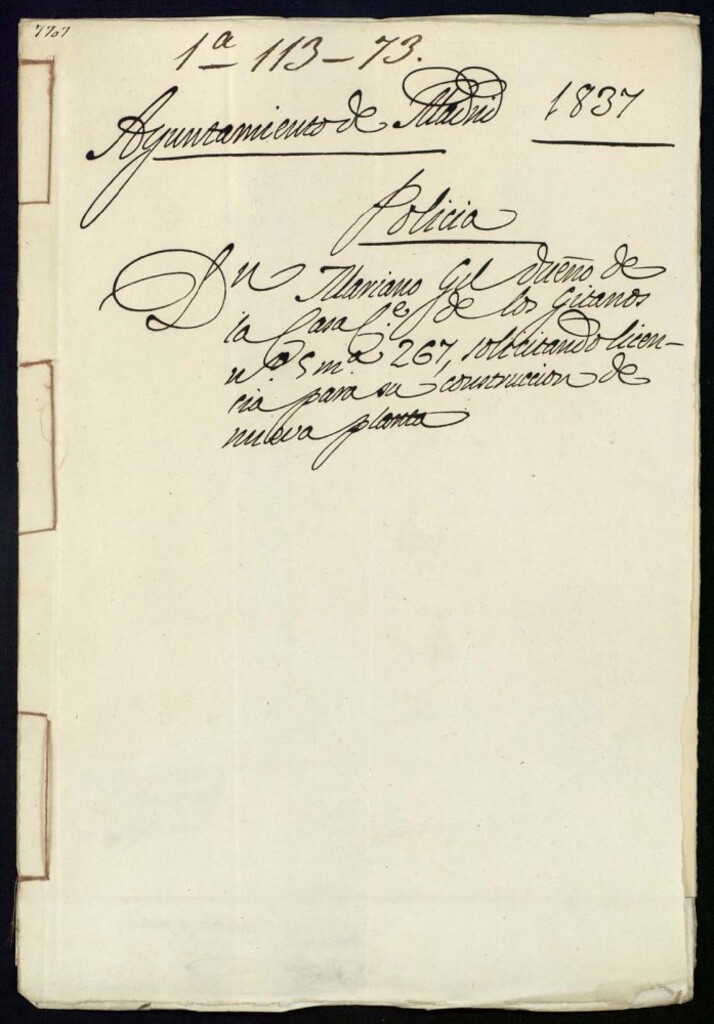 7707
1ª 113-73.
Ayuntamiento de Madrid 1837
Policia
Dn Mariano Gil dueño de
la Casa C.e de los Gitanos
n.º 5 m.ª 267, solicitando licen-
cia para su construccion de
nueva planta